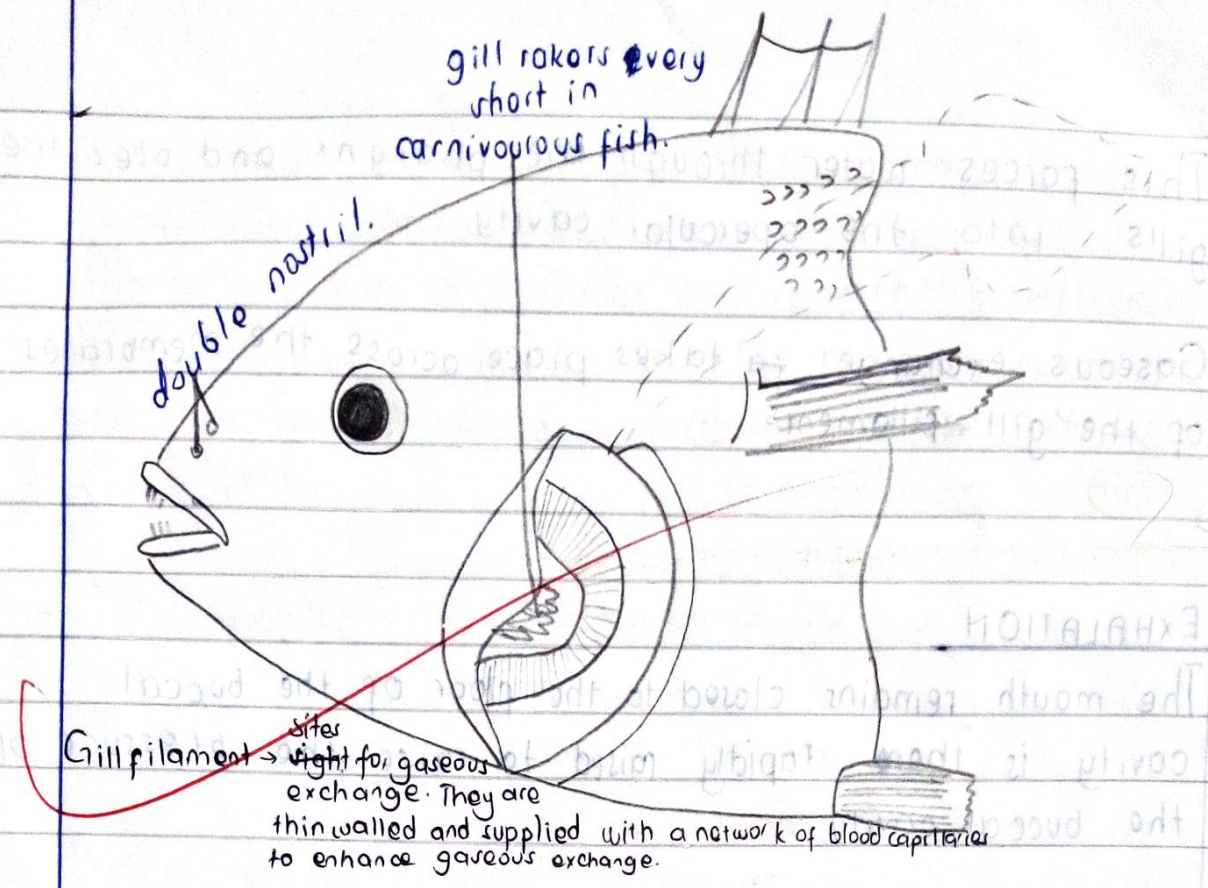 gill rakers very
short in
carnivourous fish.
double nostril.
Gill filament → sites for gaseous
exchange. They are
thin walled and supplied with a network of blood capillaries
to enhance gaseous exchange.